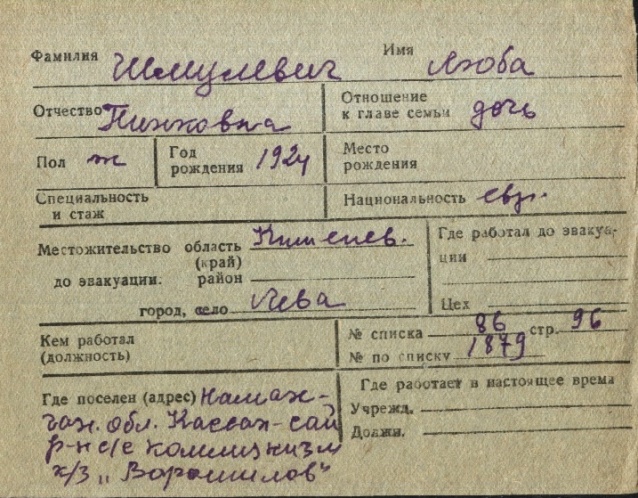 Фамилия Шмулевич Имя Люба
Отчество Пинховна Отношение к главе семьи дочь
Пол ж Год рождения 1924 Место рождения
Специальность и стаж Национальность евр.
Местожительство область (край) Кишенев.
до эвакуации: район
город, село
Где работал до эвакуации
Цех
Кем работал (должность)
№ списка 86 стр. 96
№ по списку 1879
Где поселен (адрес) Наман-
ган. обл. Кассан-сай
р-н с/с коммунизм
к/з „Ворошилов"
Где работает в настоящее время
Учрежд.
Должн.